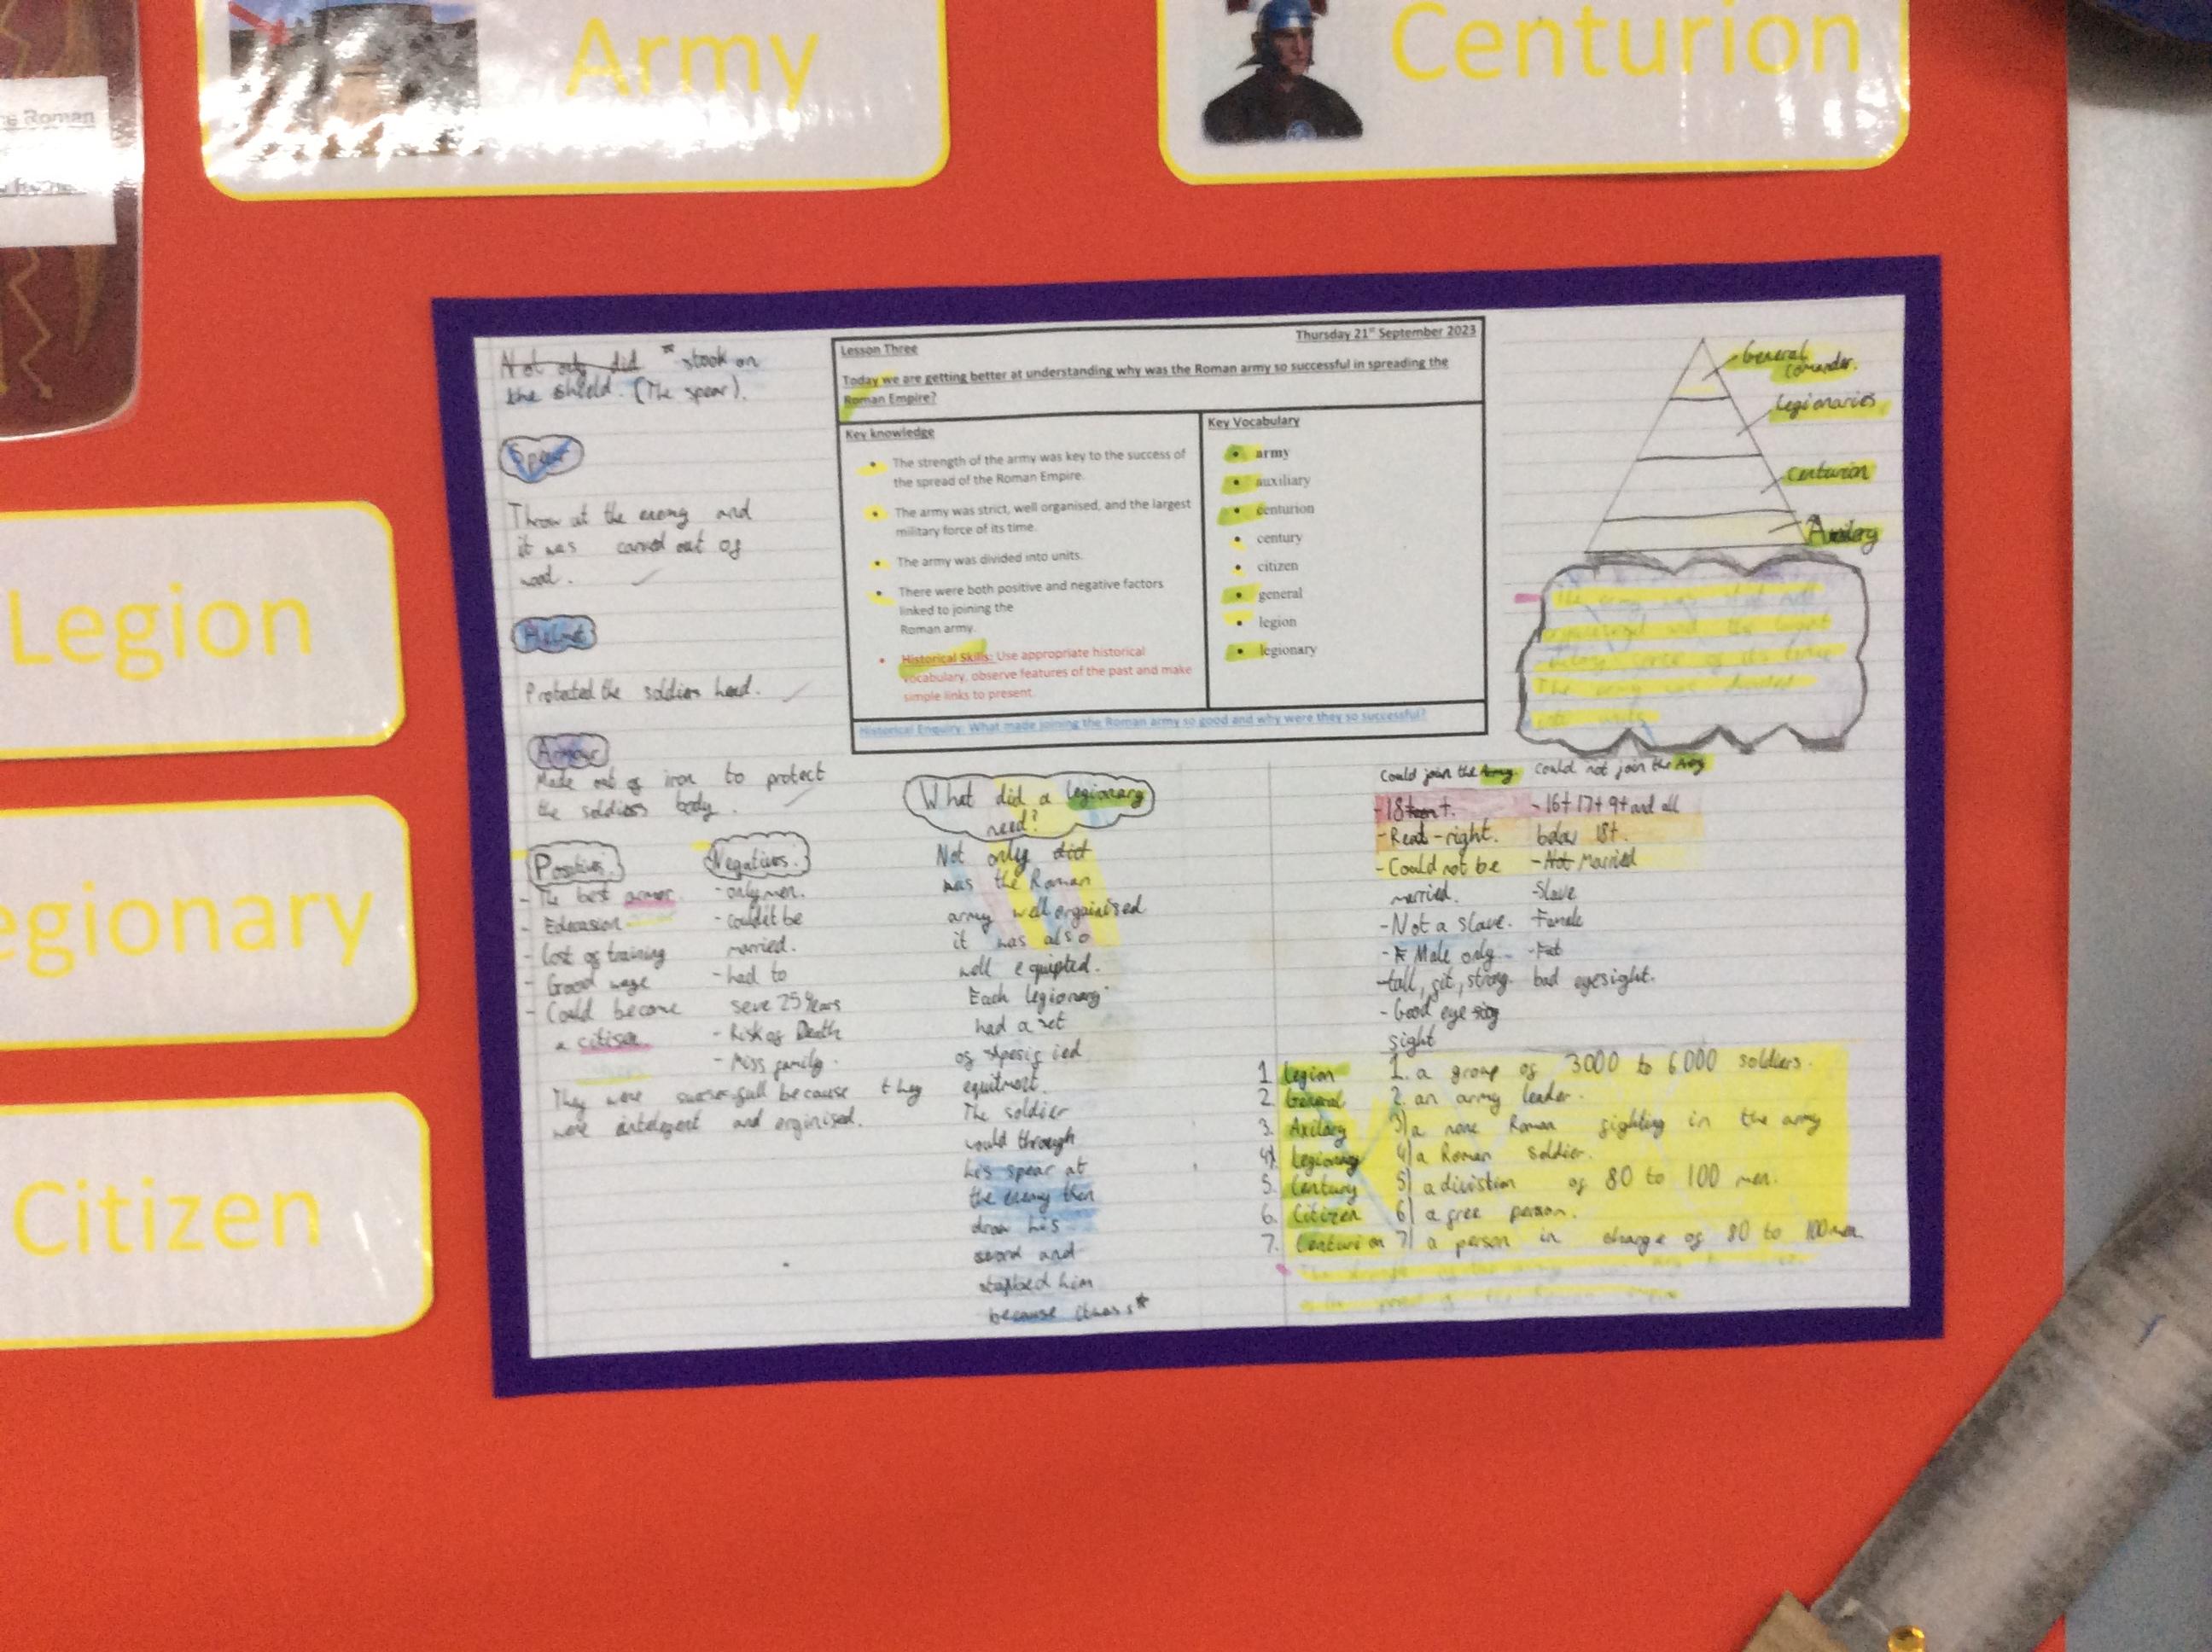 Army
Centurion
e Roman
Legion
egionary
Citizen
Not only did * stook on
the shield. (The spear).
Spear
Throw at the enemy and
it was carved out of
wood.
Helmet
Protected the soldiers head.
Armour
Made out of iron to protect
the soldiers body.
Positives
- The best armor.
- Educasion
- lost of training
- Good wage
- Could become
a citisen
Negatives.
- only men.
- couldn't be
married.
- had to
seve 25 years
- Risk of Death
- Miss family.
They were sucsesfull because they
were intelegent and orginised.
Thursday 21st September 2023
Lesson Three
Today we are getting better at understanding why was the Roman army so successful in spreading the
Roman Empire?
Key knowledge
• The strength of the army was key to the success of
the spread of the Roman Empire.
• The army was strict, well organised, and the largest
military force of its time.
• The army was divided into units.
• There were both positive and negative factors
linked to joining the
Roman army.
• Historical Skills: Use appropriate historical
vocabulary, observe features of the past and make
simple links to present.
Key Vocabulary
• army
• auxiliary
• centurion
• century
• citizen
• general
• legion
• legionary
Historical Enquiry: What made joining the Roman army so good and why were they so successful?
What did a legionary
need?
Not only did
was the Roman
army well orgainised
it was also
well equipted.
Each legionary
had a set
of spesified
equitment.
The soldier
would through
his spear at
the enemy then
draw his
sword and
stabbed him
because it was *
General
comander.
legionaries
Centurion
Axilary
The army was
organised and the largest
force of its time
The army was divided
into units
Could join the Army.
- 18+.
- Read - right.
- Could not be
married.
- Not a slave.
- Male only.
- tall, fit, strong.
- Good eye
sight
Could not join the Army
- 16+ 17+ 9+ and all
below 18+.
- Not Married
- Slave
- Female
- Fat
bad eyesight.
1. Legion 1. a group of 3000 to 6000 soldiers.
2. General 2. an army leader.
3. Axilary 3) a none Roman fighting in the army
4) Legionary 4) a Roman soldier.
5. Century 5) a divistion of 80 to 100 men.
6. Citizen 6) a free person.
7. Centurion 7) a person in charge of 80 to 100 men